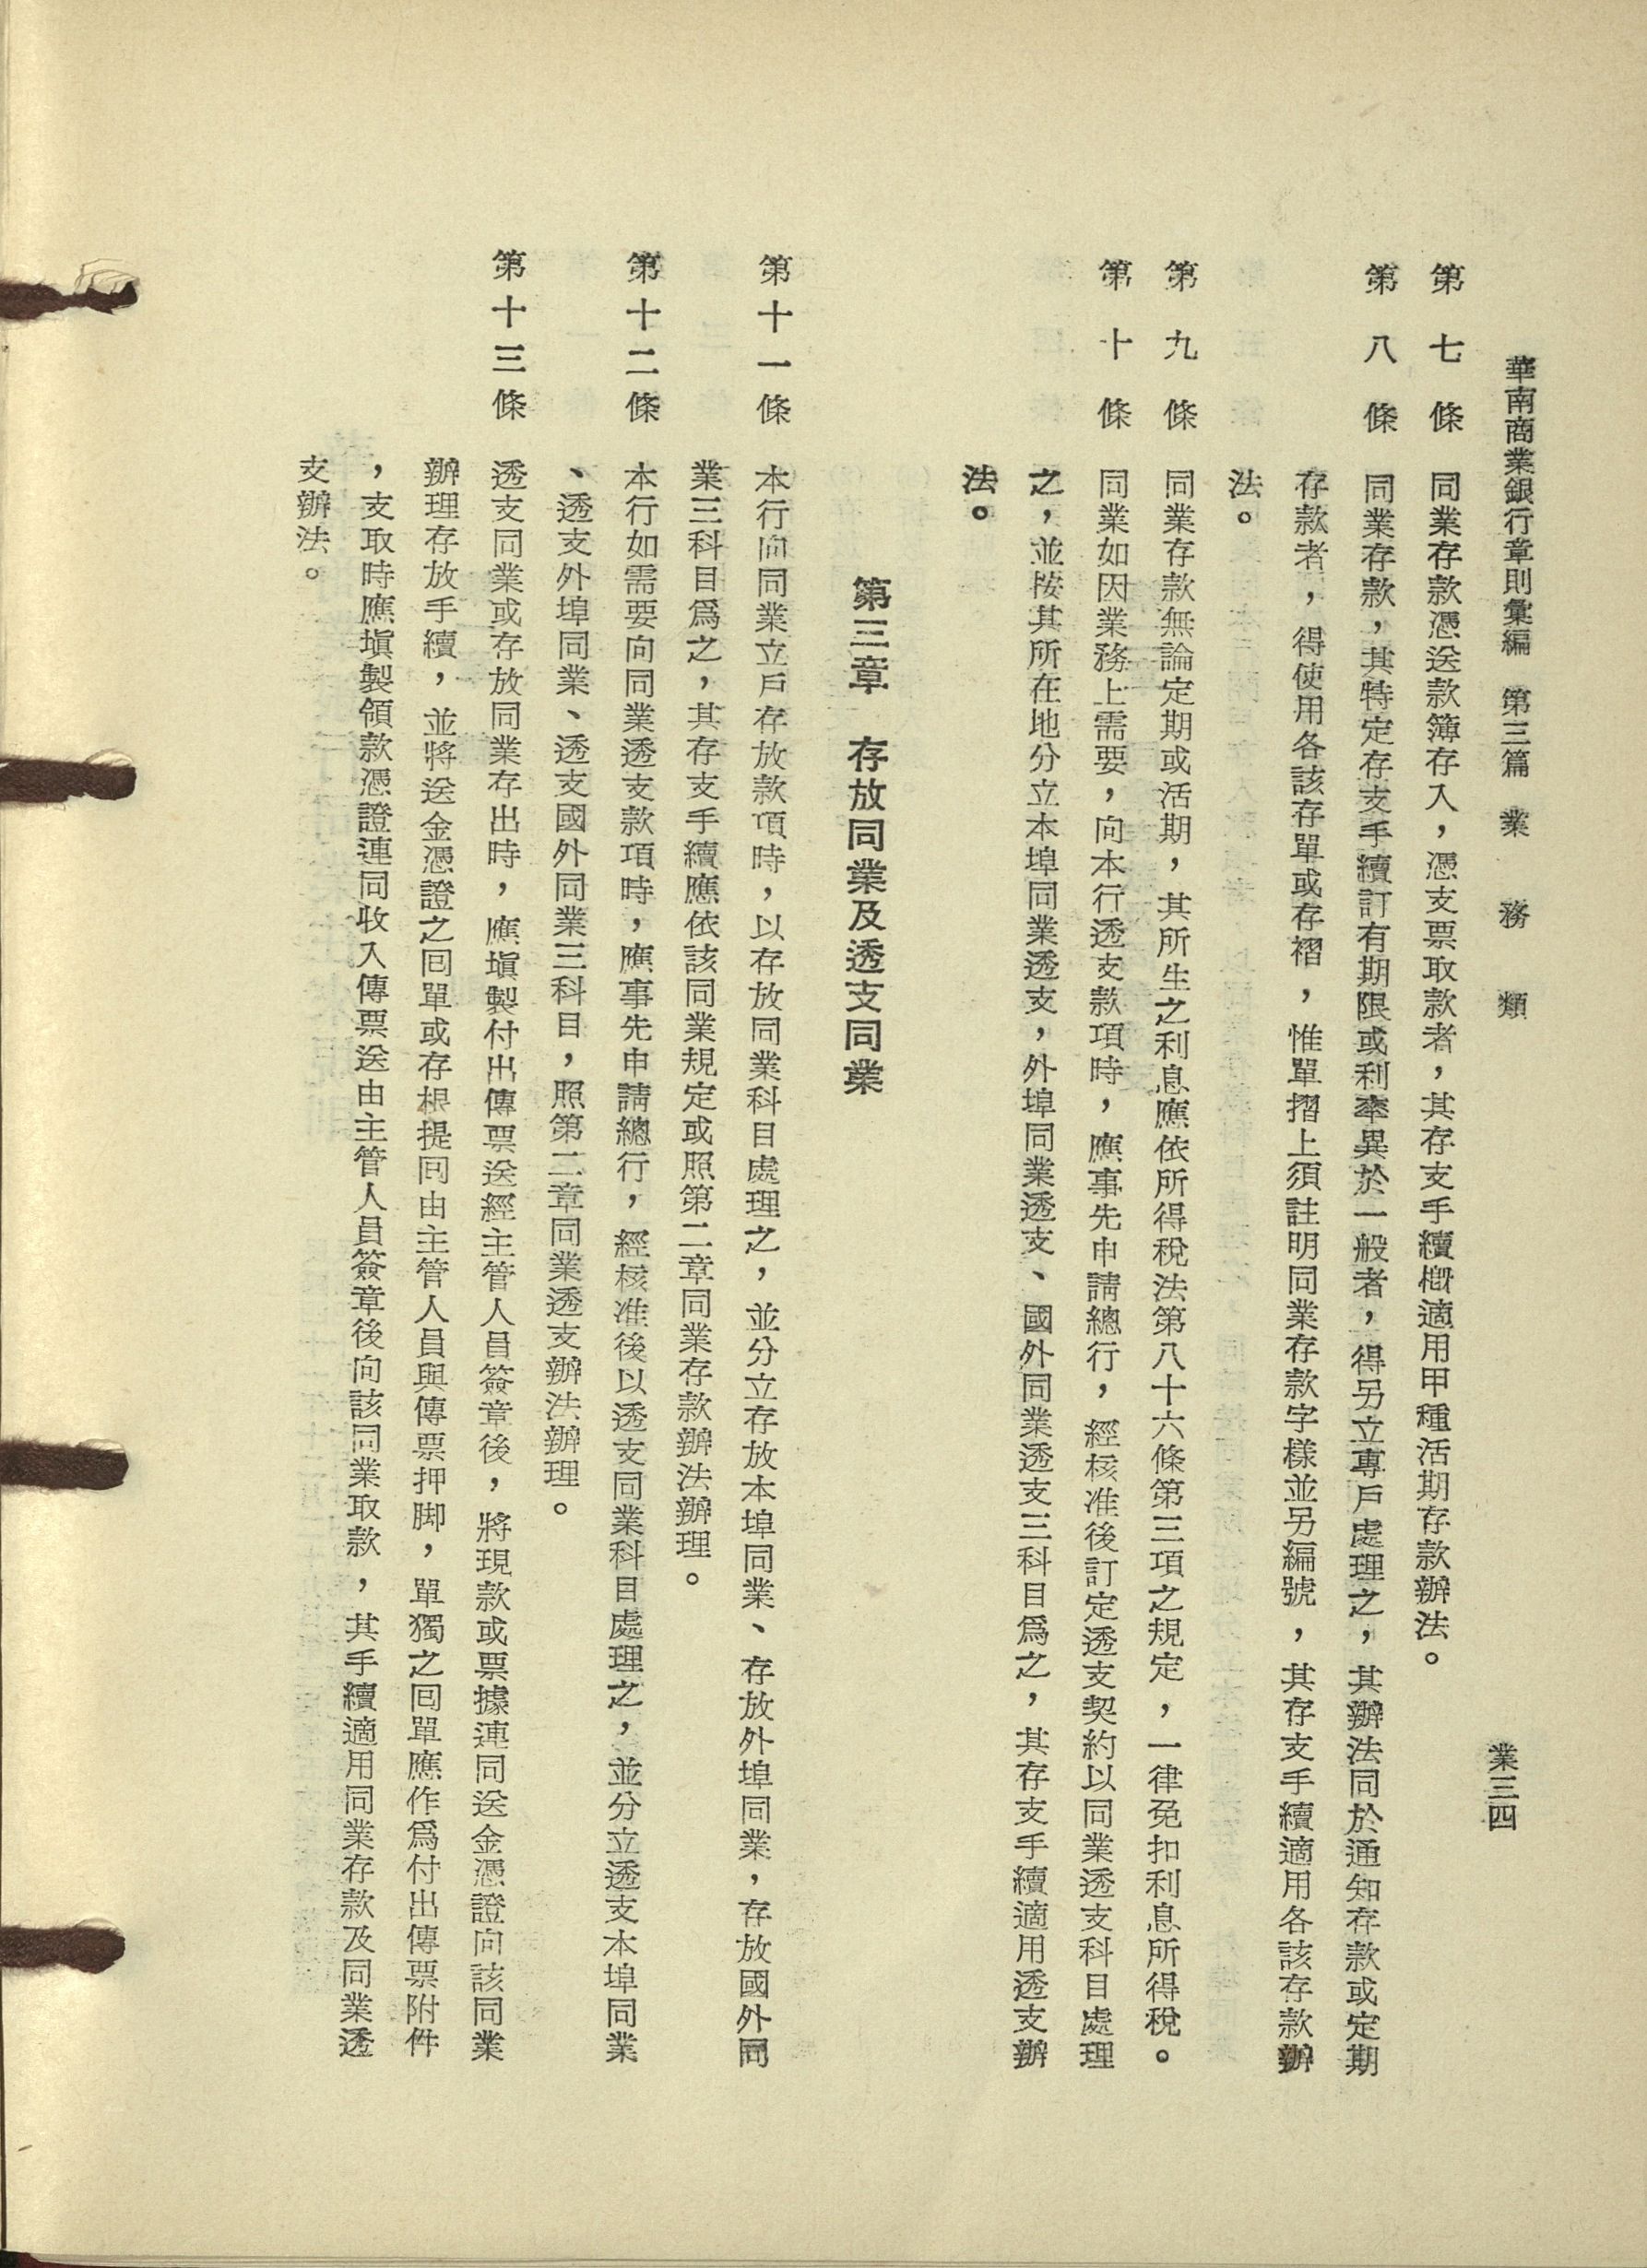 華南商業銀行章則彙編　第三篇　業　務　類
業三四
第七條　同業存款憑送款簿存入，憑支票取款者，其存支手續槪適用甲種活期存款辦法。
第八條　同業存款，其特定存支手續訂有期限或利率異於一般者，得另立專戶處理之，其辦法同於通知存款或定期
存款者，得使用各該存單或存褶，惟單摺上須註明同業存款字樣並另編號，其存支手續適用各該存款辦
法。
第九條　同業存款無論定期或活期，其所生之利息應依所得稅法第八十六條第三項之規定，一律免扣利息所得稅。
第十條　同業如因業務上需要，向本行透支款項時，應事先申請總行，經核准後訂定透支契約以同業透支科目處理
之，並按其所在地分立本埠同業透支，外埠同業透支、國外同業透支三科目爲之，其存支手續適用透支辦
法。
第三章　存放同業及透支同業
第十一條　本行向同業立戶存放款項時，以存放同業科目處理之，並分立存放本埠同業、存放外埠同業，存放國外同
業三科目爲之，其存支手續應依該同業規定或照第二章同業存款辦法辦理。
第十二條　本行如需要向同業透支款項時，應事先申請總行，經核准後以透支同業科目處理之，並分立透支本埠同業
、透支外埠同業、透支國外同業三科目，照第二章同業透支辦法辦理。
第十三條　透支同業或存放同業存出時，應塡製付出傳票送經主管人員簽章後，將現款或票據連同送金憑證向該同業
辦理存放手續，並將送金憑證之回單或存根提回由主管人員與傳票押脚，單獨之回單應作爲付出傳票附件
，支取時應塡製領款憑證連同收入傳票送由主管人員簽章後向該同業取款，其手續適用同業存款及同業透
支辦法。